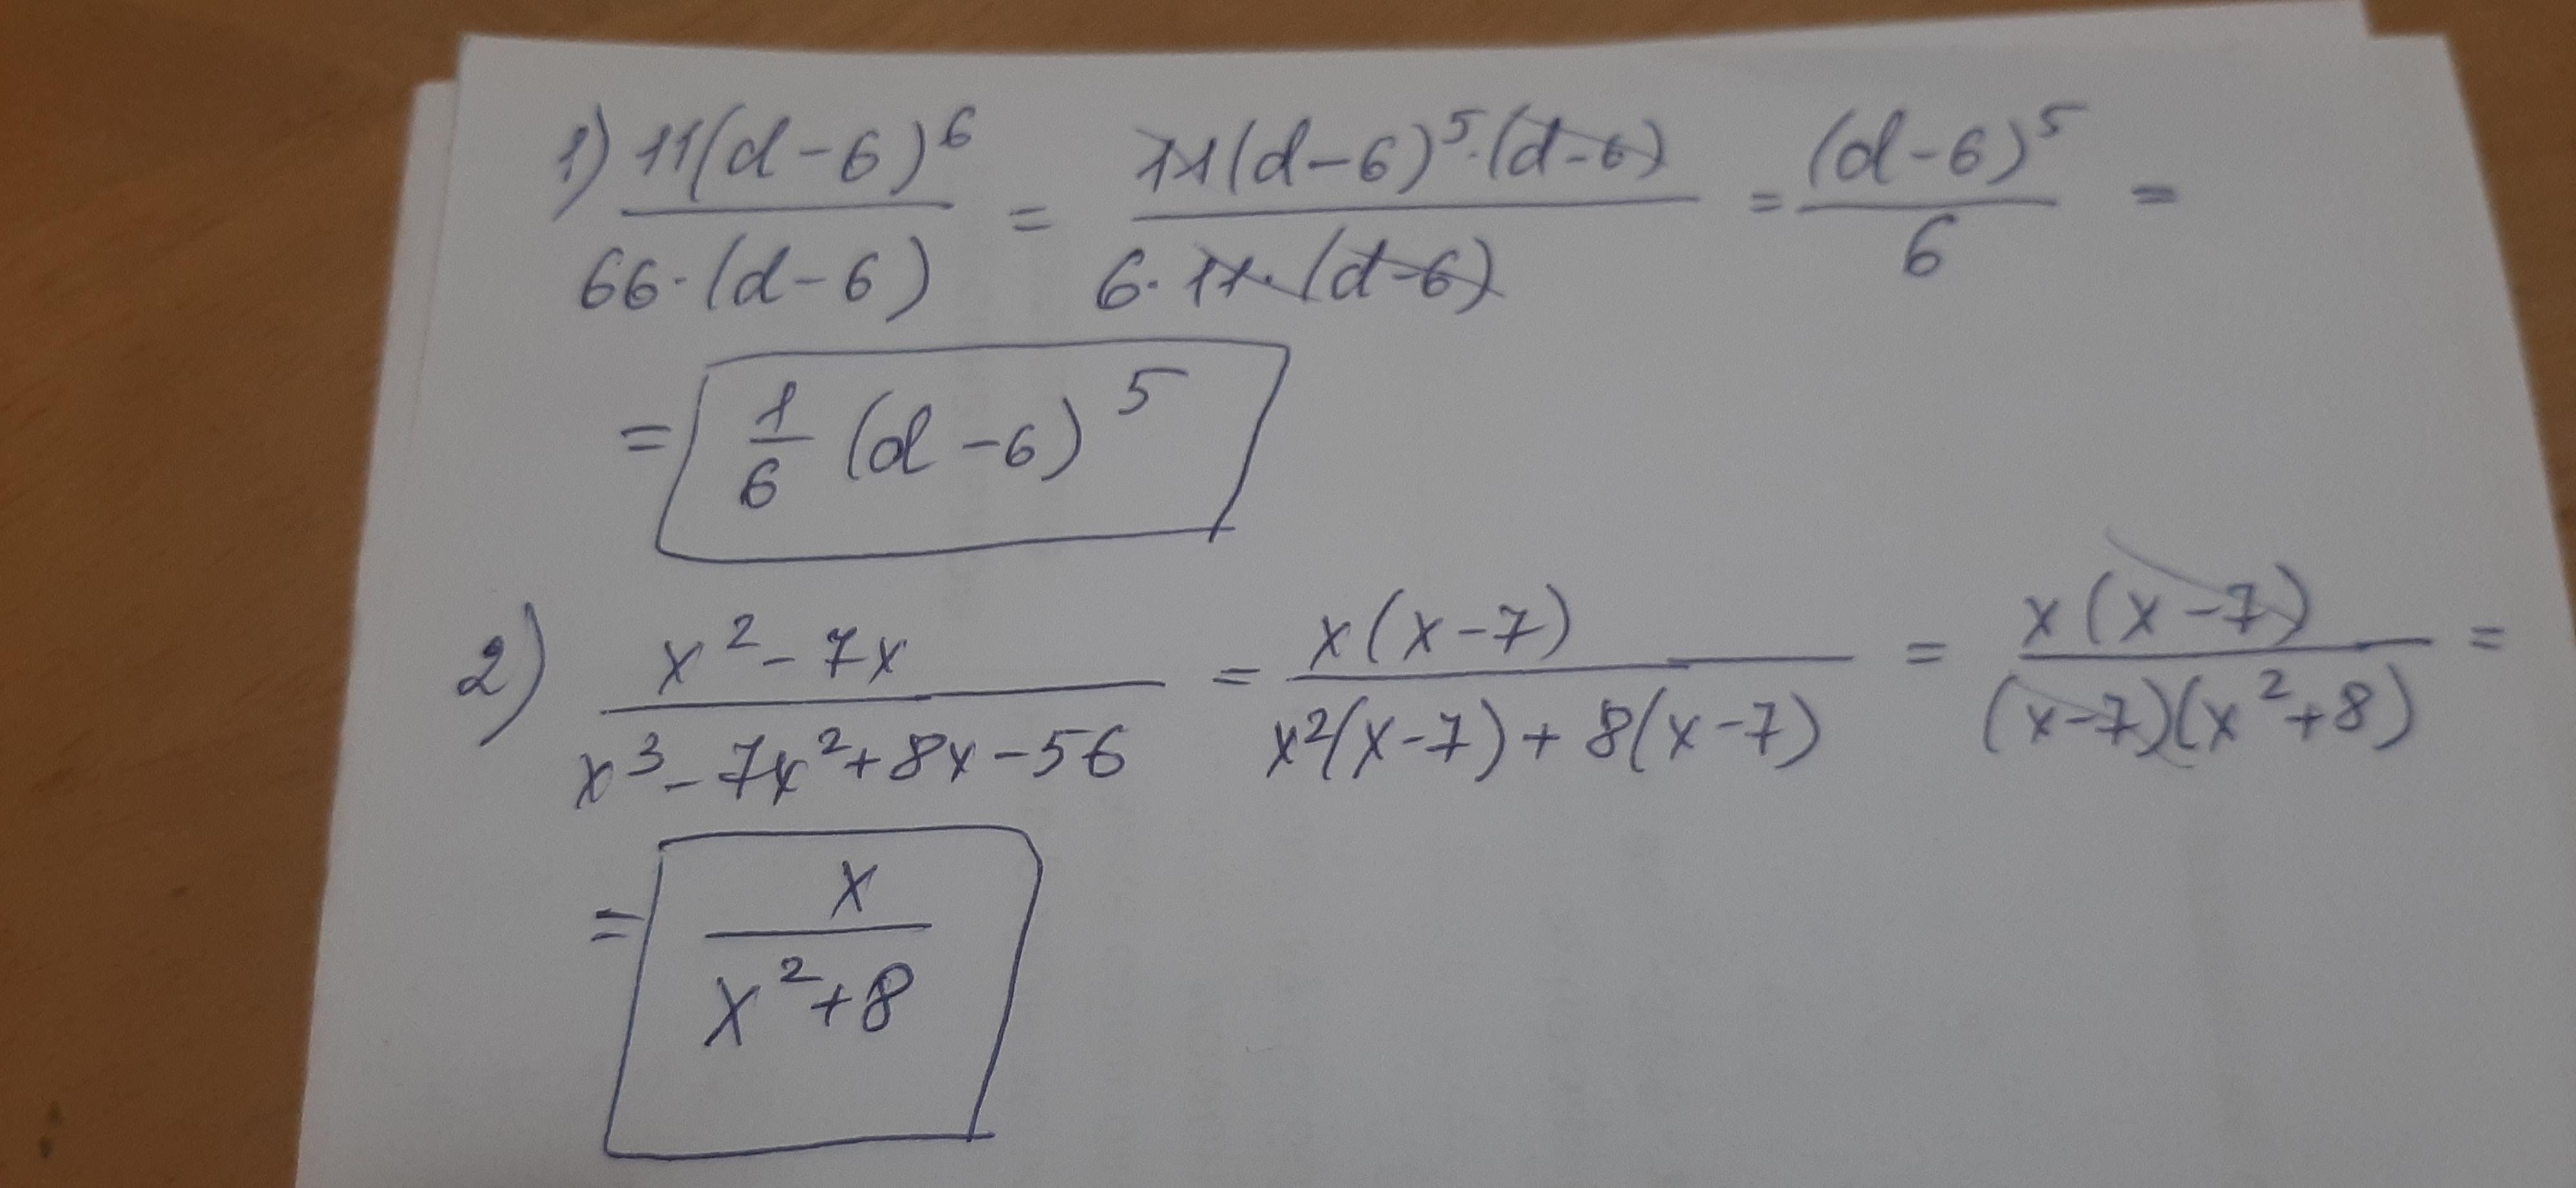 1) 11(d-6)⁶/66·(d-6) = 11(d-6)⁵·(d-6)/6·11·(d-6) = (d-6)⁵/6 =
= 1/6 (d-6)⁵
2) x²-7x/x³-7x²+8x-56 = x(x-7)/x²(x-7)+8(x-7) = x(x-7)/(x-7)(x²+8) =
= x/x²+8